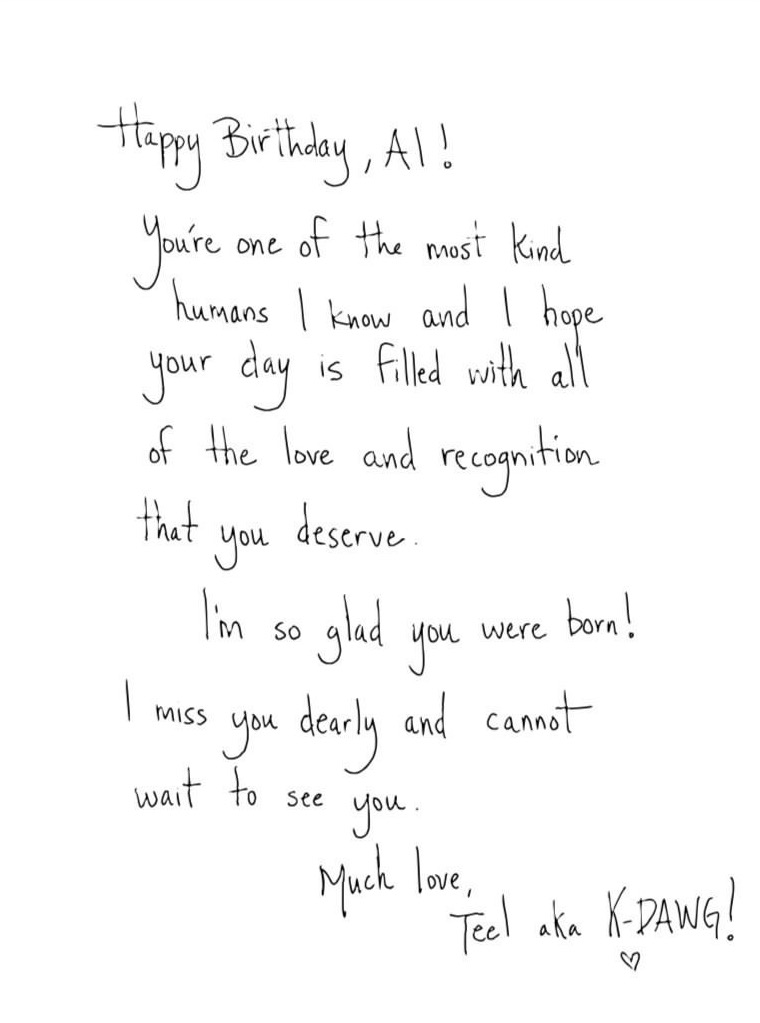 Happy Birthday, Al!
You're one of the most kind
humans I know and I hope
your day is filled with all
of the love and recognition
that you deserve.
I'm so glad you were born!
I miss you dearly and cannot
wait to see you.
Much love,
Teel aka K-DAWG!
♡